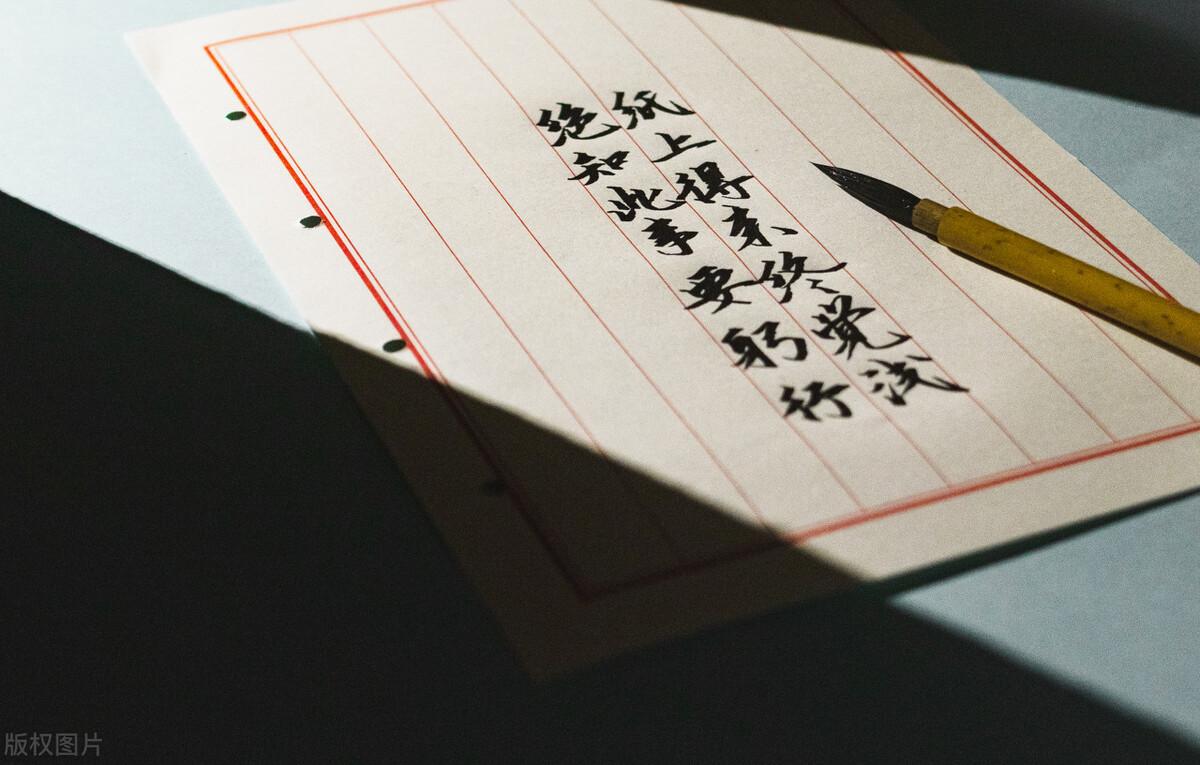 纸上得来终觉浅
绝知此事要躬行
版权图片